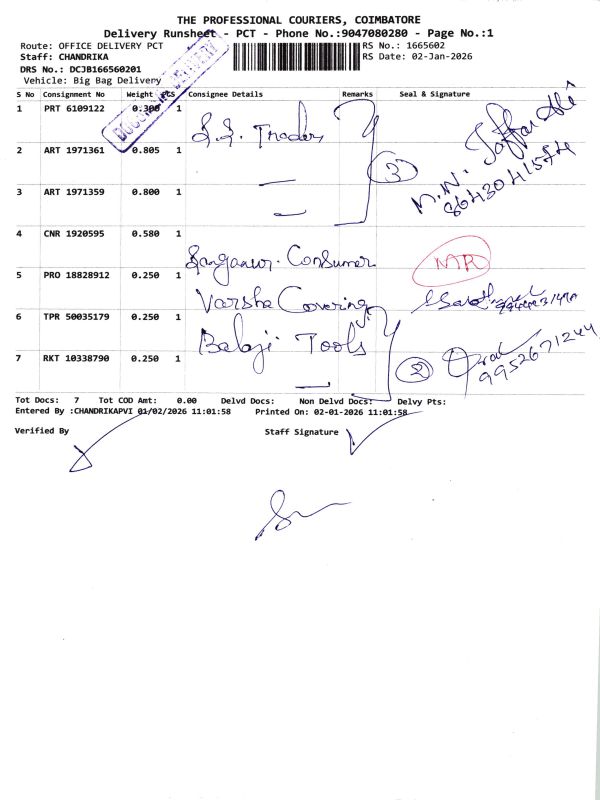 THE PROFESSIONAL COURIERS, COIMBATORE
Delivery Runsheet - PCT - Phone No.:9047080280 - Page No.:1
Route: OFFICE DELIVERY PCT
RS No.: 1665602
Staff: CHANDRIKA
RS Date: 02-Jan-2026
DRS No.: DCJB166560201
Vehicle: Big Bag Delivery
DOCUMENT DELIVERY
S No Consignment No Weight PCS Consignee Details Remarks Seal & Signature
1 PRT 6109122 0.300 1 S.S. Traders
Jaffar Ali
2 ART 1971361 0.805 1 3
M.N.
3 ART 1971359 0.800 1
8643041574
4 CNR 1920595 0.580 1 Sanganur. Consumer NR
5 PRO 18828912 0.250 1 Varsha Covering
6 TPR 50035179 0.250 1 Balaji Tools
7 RKT 10338790 0.250 1 2 9952671244
Tot Docs: 7 Tot COD Amt: 0.00 Delvd Docs: Non Delvd Docs: Delvy Pts:
Entered By :CHANDRIKAPVI 01/02/2026 11:01:58 Printed On: 02-01-2026 11:01:58
Verified By Staff Signature